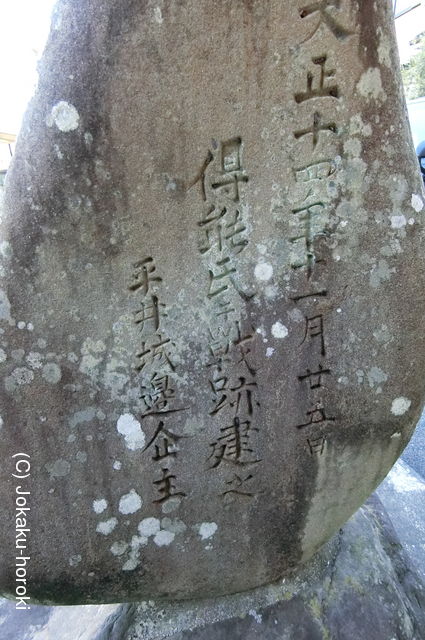 大正十四年十一月廿五日
得能氏力戰跡建之
平井城邊企主
(C) Jokaku-horoki